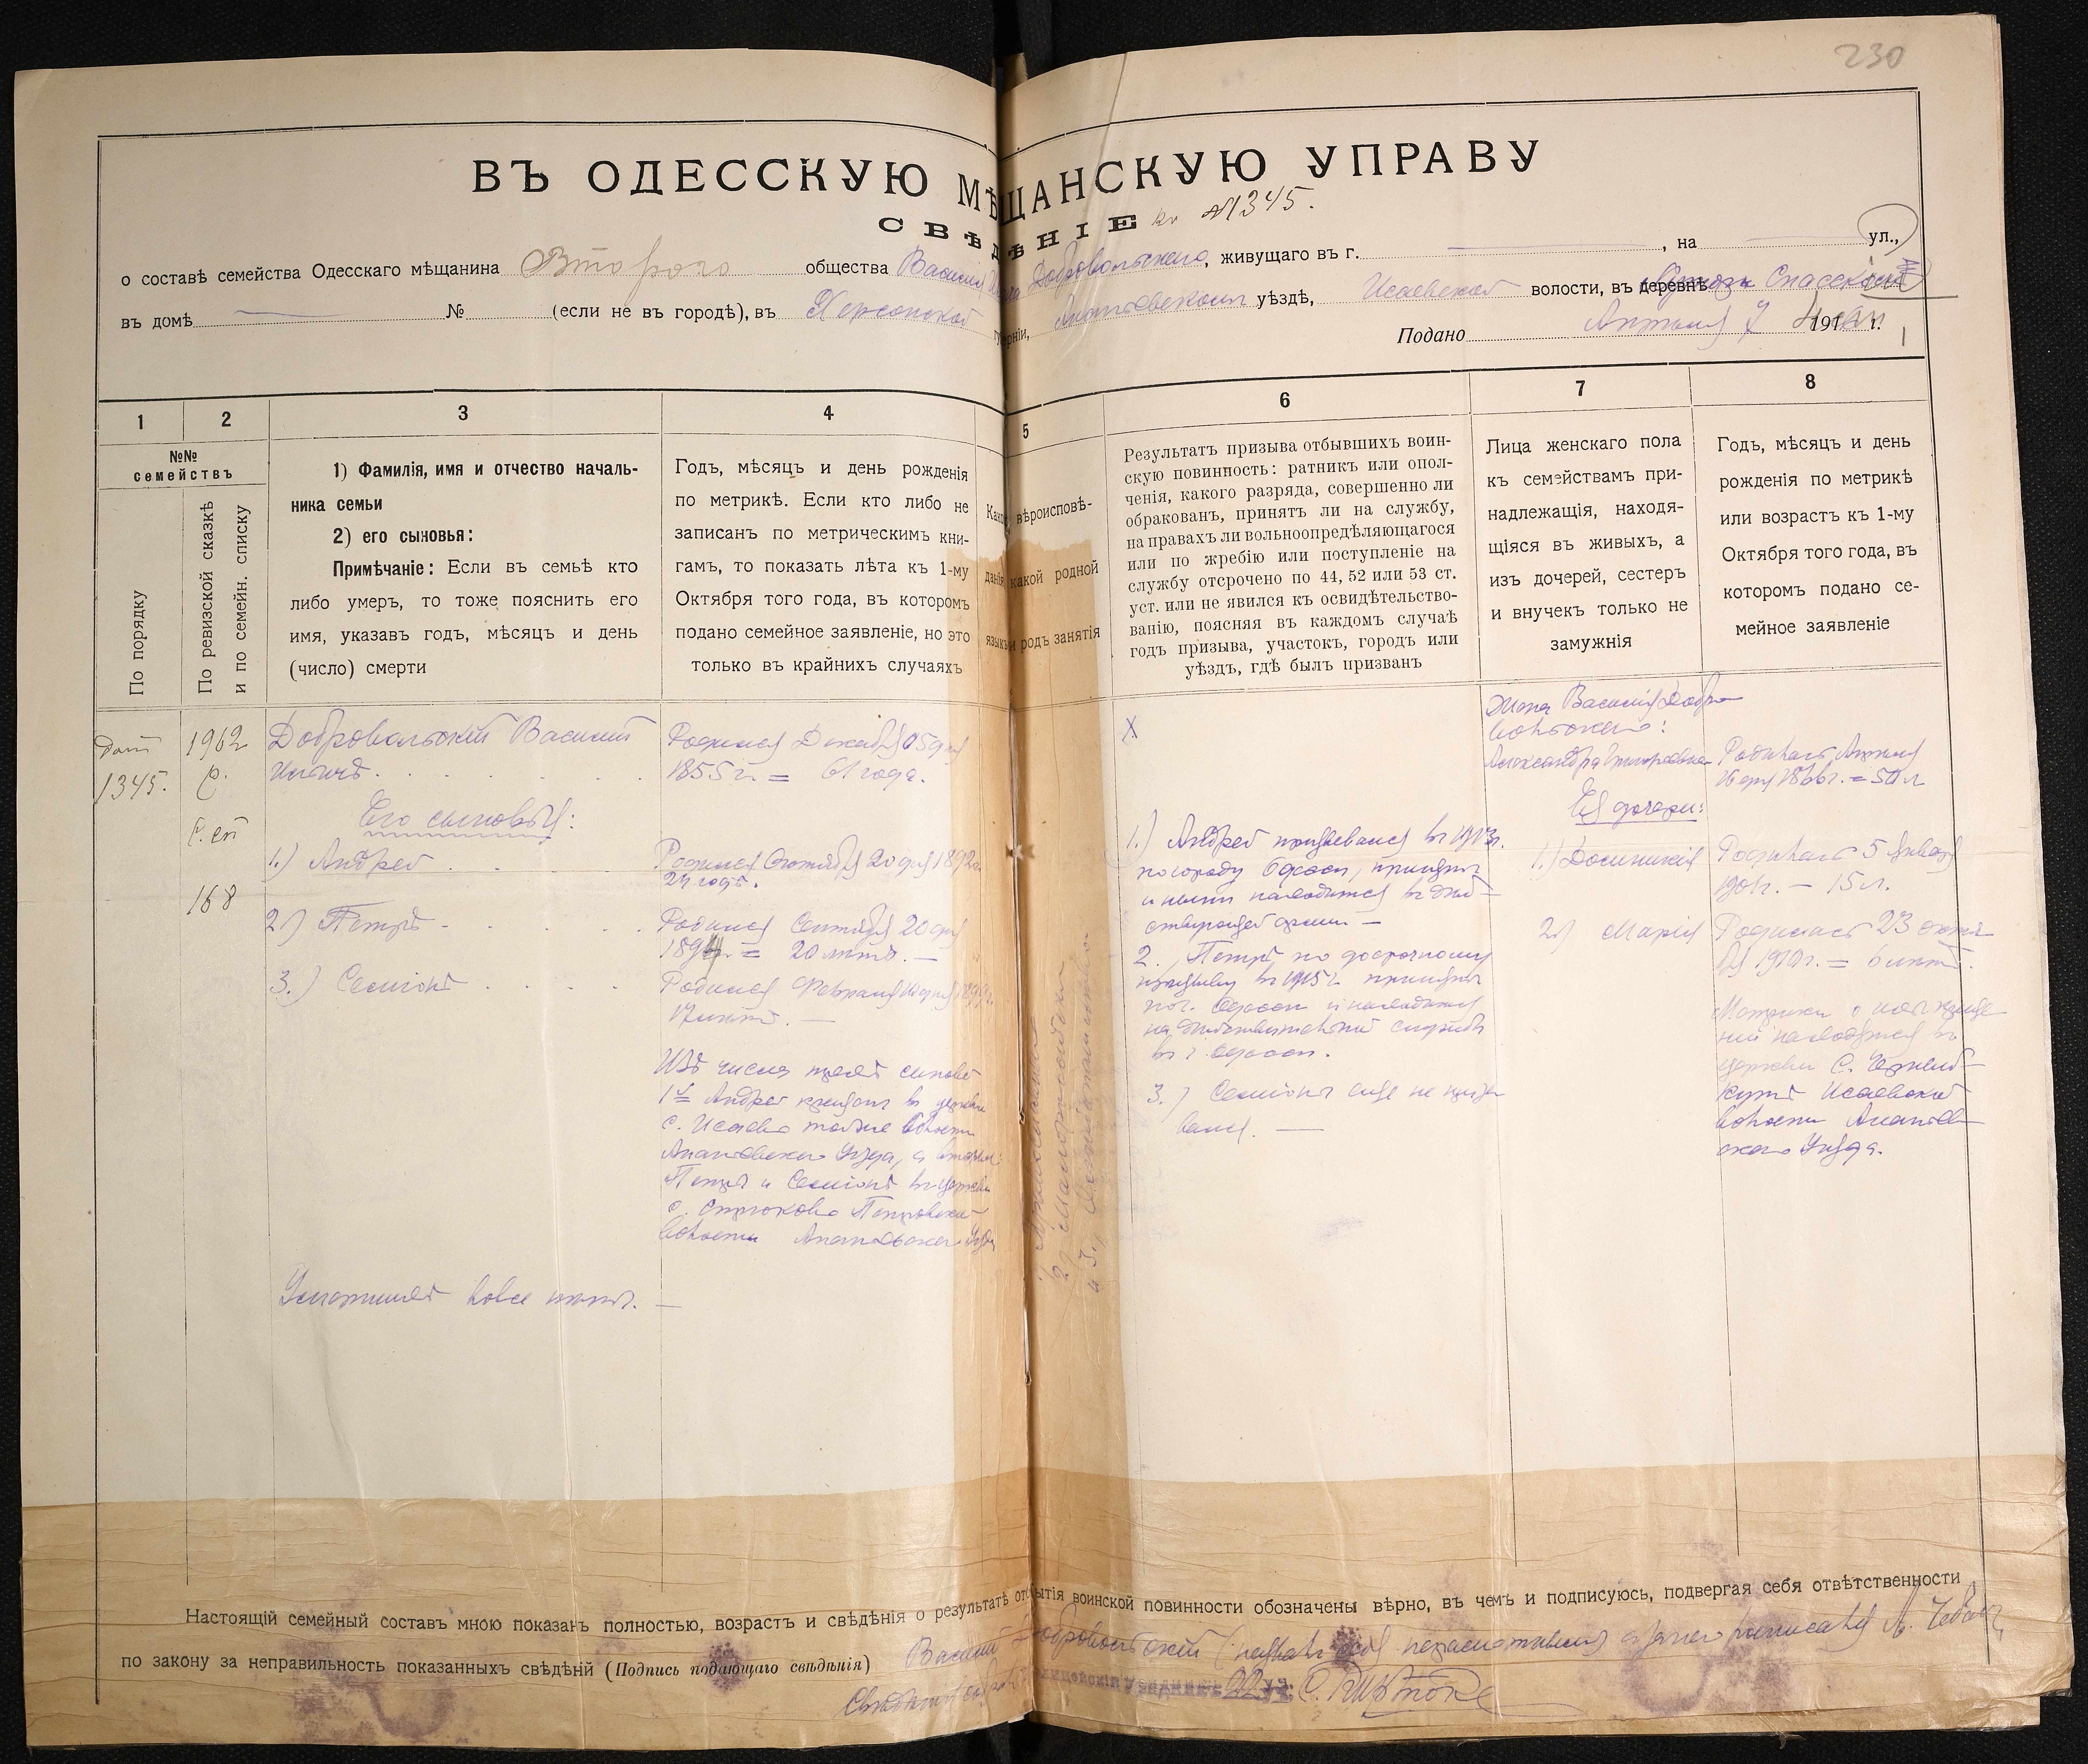 230
ВЪ ОДЕССКУЮ МѢЩАНСКУЮ УПРАВУ
СВѢДѢНІЕ № 1345.
о составѣ семейства Одесскаго мѣщанина Второго общества Василія Добровольскаго, живущаго въ г. , на ул.,
въ домѣ № (если не въ городѣ), въ Херсонской губерніи, Ананьевскомъ уѣздѣ, Исаевской волости, въ деревнѣ Спасской
Подано Апрѣля 7 дня 191 г.
1 2 3 4 5 6 7 8
№№ семействъ
По порядку
По ревизской сказкѣ и по семейн. списку
1) Фамилія, имя и отчество началь-
ника семьи
2) его сыновья:
Примѣчаніе: Если въ семьѣ кто
либо умеръ, то тоже пояснить его
имя, указавъ годъ, мѣсяцъ и день
(число) смерти
Годъ, мѣсяцъ и день рожденія
по метрикѣ. Если кто либо не
записанъ по метрическимъ кни-
гамъ, то показать лѣта къ 1-му
Октября того года, въ которомъ
подано семейное заявленіе, но это
только въ крайнихъ случаяхъ
Како вѣроисповѣ-
данія какой родной
языкъ и родъ занятія
Результатъ призыва отбывшихъ воин-
скую повинность: ратникъ или опол-
ченія, какого разряда, совершенно ли
обракованъ, принятъ ли на службу,
на правахъ ли вольноопредѣляющагося
или по жребію или поступленіе на
службу отсрочено по 44, 52 или 53 ст.
уст. или не явился къ освидѣтельство-
ванію, поясняя въ каждомъ случаѣ
годъ призыва, участокъ, городъ или
уѣздъ, гдѣ былъ призванъ
Лица женскаго пола
къ семействамъ при-
надлежащія, находя-
щіяся въ живыхъ, а
изъ дочерей, сестеръ
и внучекъ только не
замужнія
Годъ, мѣсяцъ и день
рожденія по метрикѣ
или возрастъ къ 1-му
Октября того года, въ
которомъ подано се-
мейное заявленіе
1345.
1962
р.
168
Добровольскій Василій
Его сыновья:
1.) Андрей
2.) Петръ
3.) Семіонъ
Умершихъ вовсе нѣтъ. —
Родился Декабря 5 дня
1855 г. = 61 года.
Родился Октября 20 дня 1892 г.
Родился Сентября 20 дня
1894 г. = 20 лѣтъ. —
Родился Февраля
17 лѣтъ. —
Изъ числа трехъ сыновей
1й Андрей крещонъ въ церкви
с. Исаево тойже волости
Ананьевскаго Уѣзда, а
Петръ и Семіонъ въ церкви
с. Стрюково Петровской
волости Ананьевскаго Уѣзда
X
1.) Андрей призывался въ 1913 г.
по городу Одессы, принятъ
и нынѣ находится въ дѣй-
ствующей арміи —
2. Петръ по досрочному
призыву въ 1915 г. принятъ
по г. Одессы и находится
на дѣйствительной службѣ
въ г. Одессы.
3.) Семіонъ еще не призы-
вался. —
Жена Василія Добро-
вольскаго:
Александра
Ея дочери:
1.) Домникія
2.) Марія
Родилась Апрѣля
1866 г. = 50 л
Родилась 5 Января
1901 г. — 15 л.
Родилась 23 октя-
бря 1910 г. = 6 лѣтъ.
Метрики о ихъ креще-
ніи находятся въ
церкви С.
Исаевской
волости Ананьев-
скаго Уѣзда.
Настоящій семейный составъ мною показанъ полностью, возрастъ и свѣдѣнія о результатѣ отбытія воинской повинности обозначены вѣрно, въ чемъ и подписуюсь, подвергая себя отвѣтственности
по закону за неправильность показанныхъ свѣдѣній (Подпись подающаго свѣдѣнія) Василій Добровольскій
Полицейскій Урядникъ 22 уч.